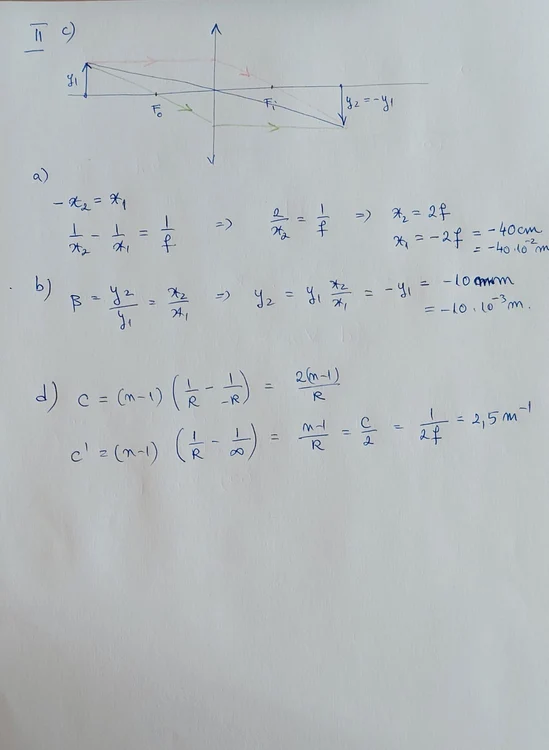 II c)
y₁
F₀
Fᵢ
y₂ = -y₁
a)
-x₂ = x₁
1/x₂ - 1/x₁ = 1/f => 2/x₂ = 1/f => x₂ = 2f
x₁ = -2f = -40cm
= -40·10⁻² m
b) β = y₂/y₁ = x₂/x₁ => y₂ = y₁ x₂/x₁ = -y₁ = -10 mm
= -10·10⁻³ m.
d) C = (n-1) (1/R - 1/-R) = 2(n-1)/R
C' = (n-1) (1/R - 1/∞) = n-1/R = C/2 = 1/2f = 2,5 m⁻¹